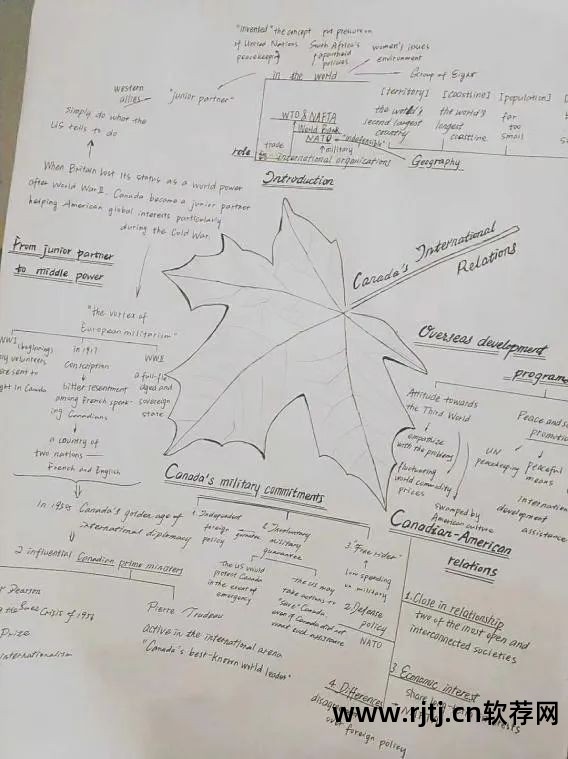 "invented" the concept
of United Nations
peacekeeping
put pressure on
South Africa's
apartheid
policies
women's issues
environment
Group of Eight
in the world
western
allies
"junior partner"
simply do what the
US tells to do
WTO & NAFTA
World Bank
NATO "indefensible"
trade
military
role
international organizations
[territory]
the world's
second largest
country
[coastline]
the world's
longest
coastline
[population]
far
too
small
Geography
Introduction
When Britain lost its status as a world power
after World War II. Canada became a junior partner
helping American global interests particularly
during the Cold War.
From junior partner
to middle power
Canada's International
Relations
"the vortex of
European militarism"
WWI (beginning)
volunteers
sent to
in Canada
in 1917
Conscription
bitter resentment
among French speak-
ing Canadians
a country of
two nations —
French and English
WWI
aged and
sovereign
state
In 1950s Canada's golden age of
international diplomacy
2 influential Canadian prime ministers
Pearson
Crisis of 1956
Prize
internationalism
Pierre Trudeau
active in the international arena
"Canada's best-known world leader"
Overseas development
Attitude towards
the Third World
empathize
with the problems
fluctuating
world commodity
prices
swamped by
American culture
Peace and
UN
peacekeeping
peaceful
means
development
assistance
Canada's military commitments
1. Independent
foreign
policy
2. Involuntary
military
guarantee
The US would
protect Canada
in the event of
emergency
The US may
take actions to
"save" Canada
even if Canada did not
want such assistance
3. "Free rider"
low spending
on military
Canadian-American
relations
1. Close in relationship
two of the most open and
interconnected societies
2. Defense
policy
NATO
3. Economic interest
share
4. Differences
over foreign policy
www.rjtj.cn软荐网